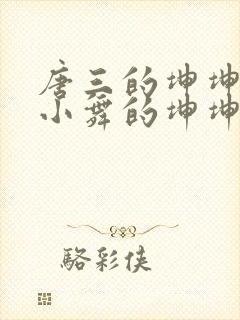 唐三的坤坤
小舞的坤坤
駱彩俠